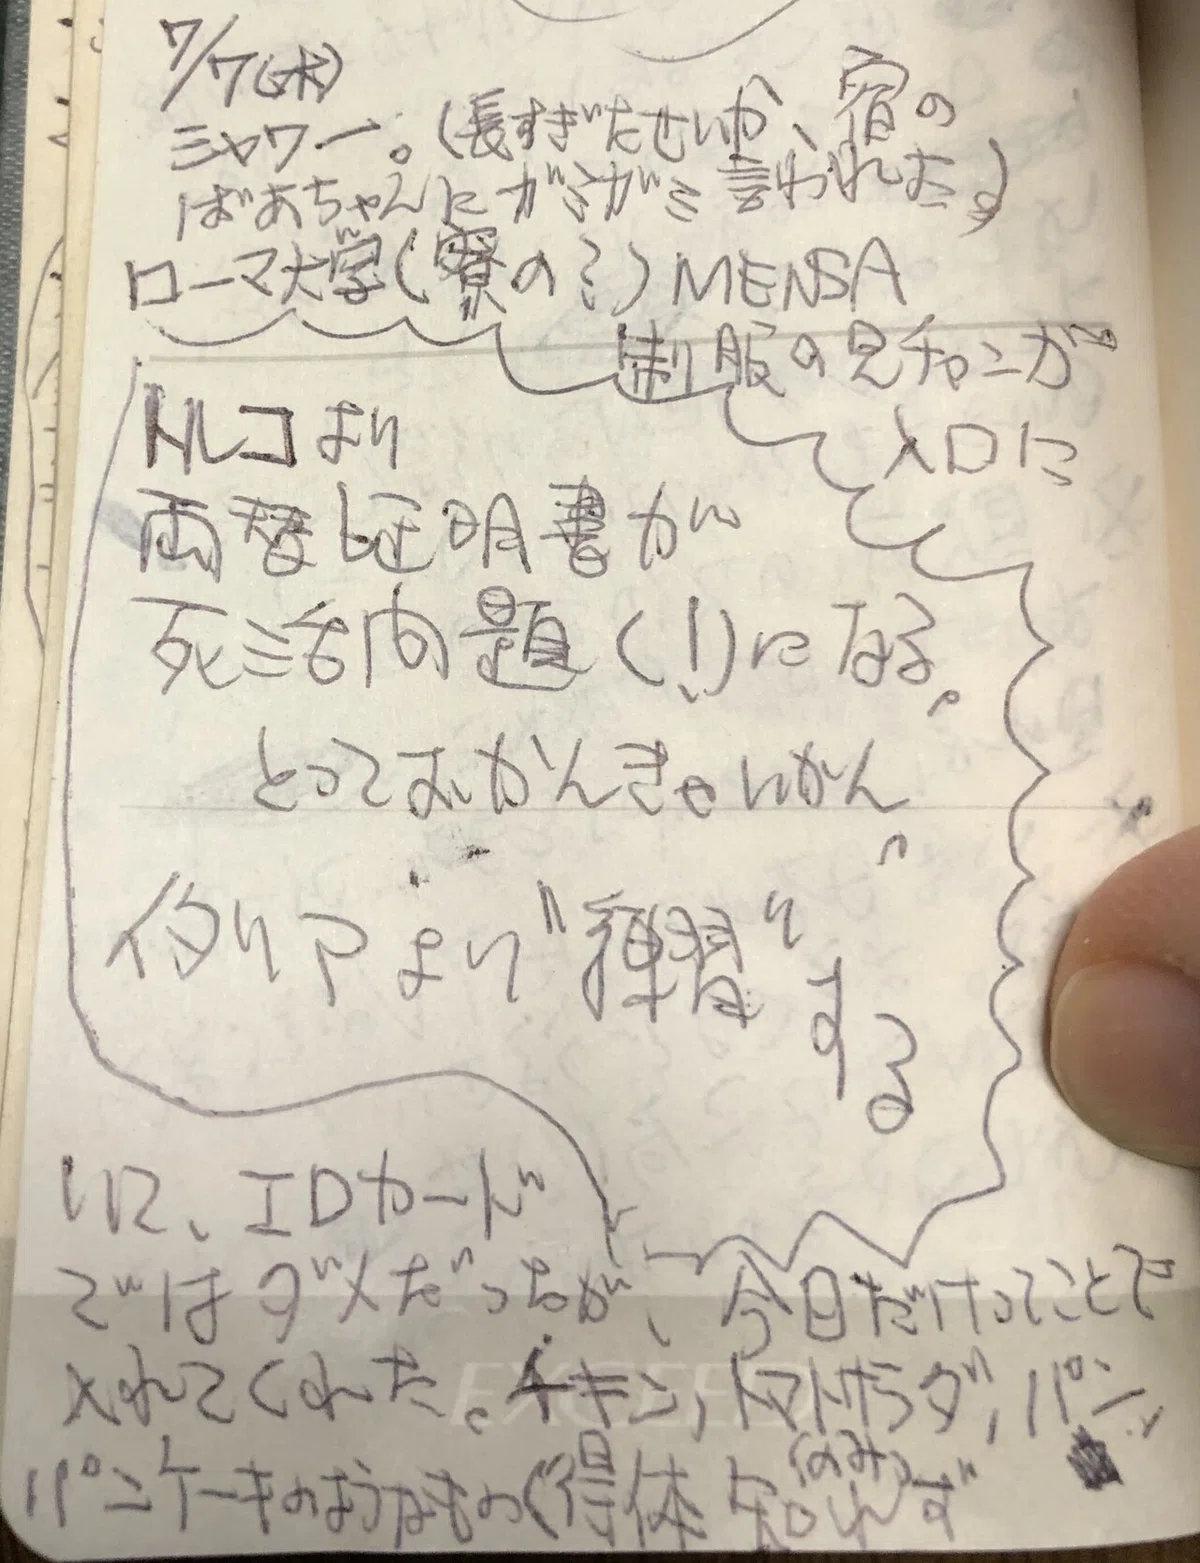 7/7(木)
シャワー。(長すぎたせいか、宿の
ばあちゃんにガミガミ言われた。)
ローマ大学(寮の?)MENSA
制服の兄チャンが
メロに
トルコより
両替証明書が
死活問題(!)になる。
とっておかんきゃいかん。
イタリアより"練習"
する
いに、IDカード
ではダメだったが、今日だけってことで
入れてくれた。チキン,トマトサラダ,パン,
パンケーキのようなもの(得体知れず
(のみ)
EXCEED